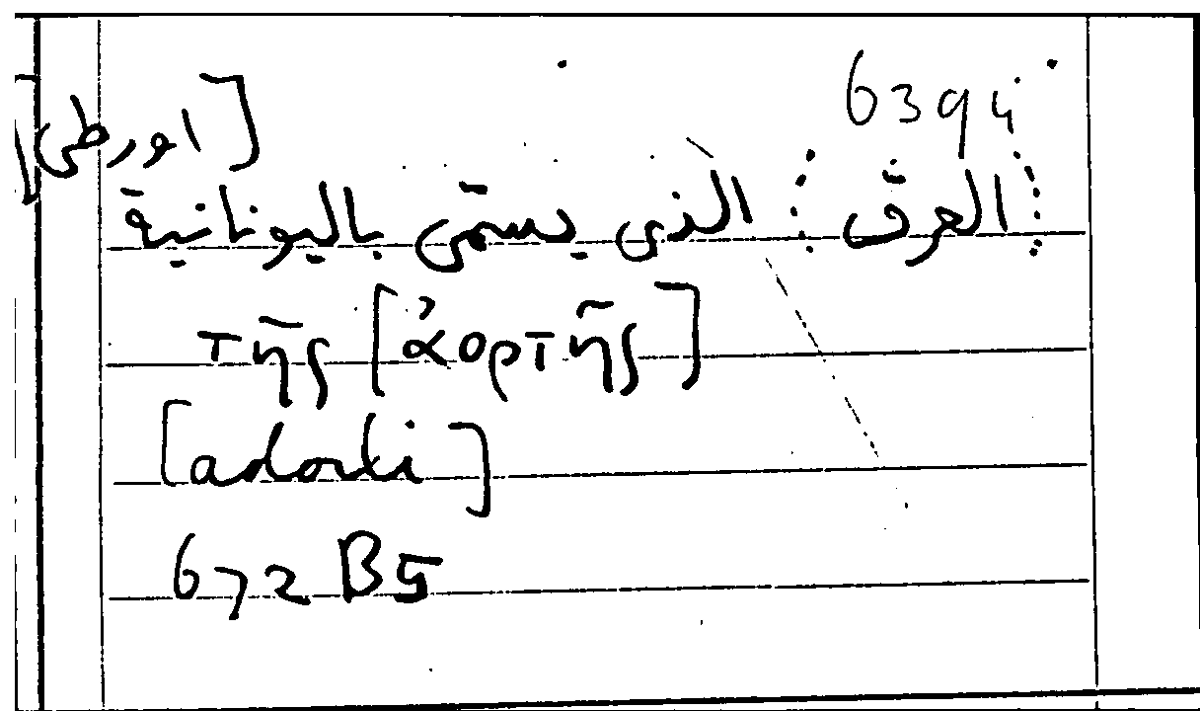 6394
[اورطى]
العرق الذى يسمّى باليونانية
τῆς [ἀορτῆς]
[adorti]
672 B5